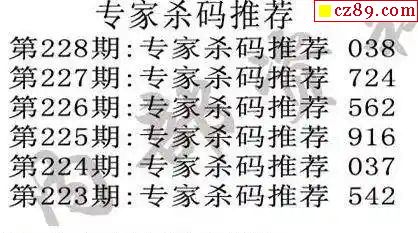 cz89.com
专家杀码推荐
第228期:专家杀码推荐 038
第227期:专家杀码推荐 724
第226期:专家杀码推荐 562
第225期:专家杀码推荐 916
第224期:专家杀码推荐 037
第223期:专家杀码推荐 542